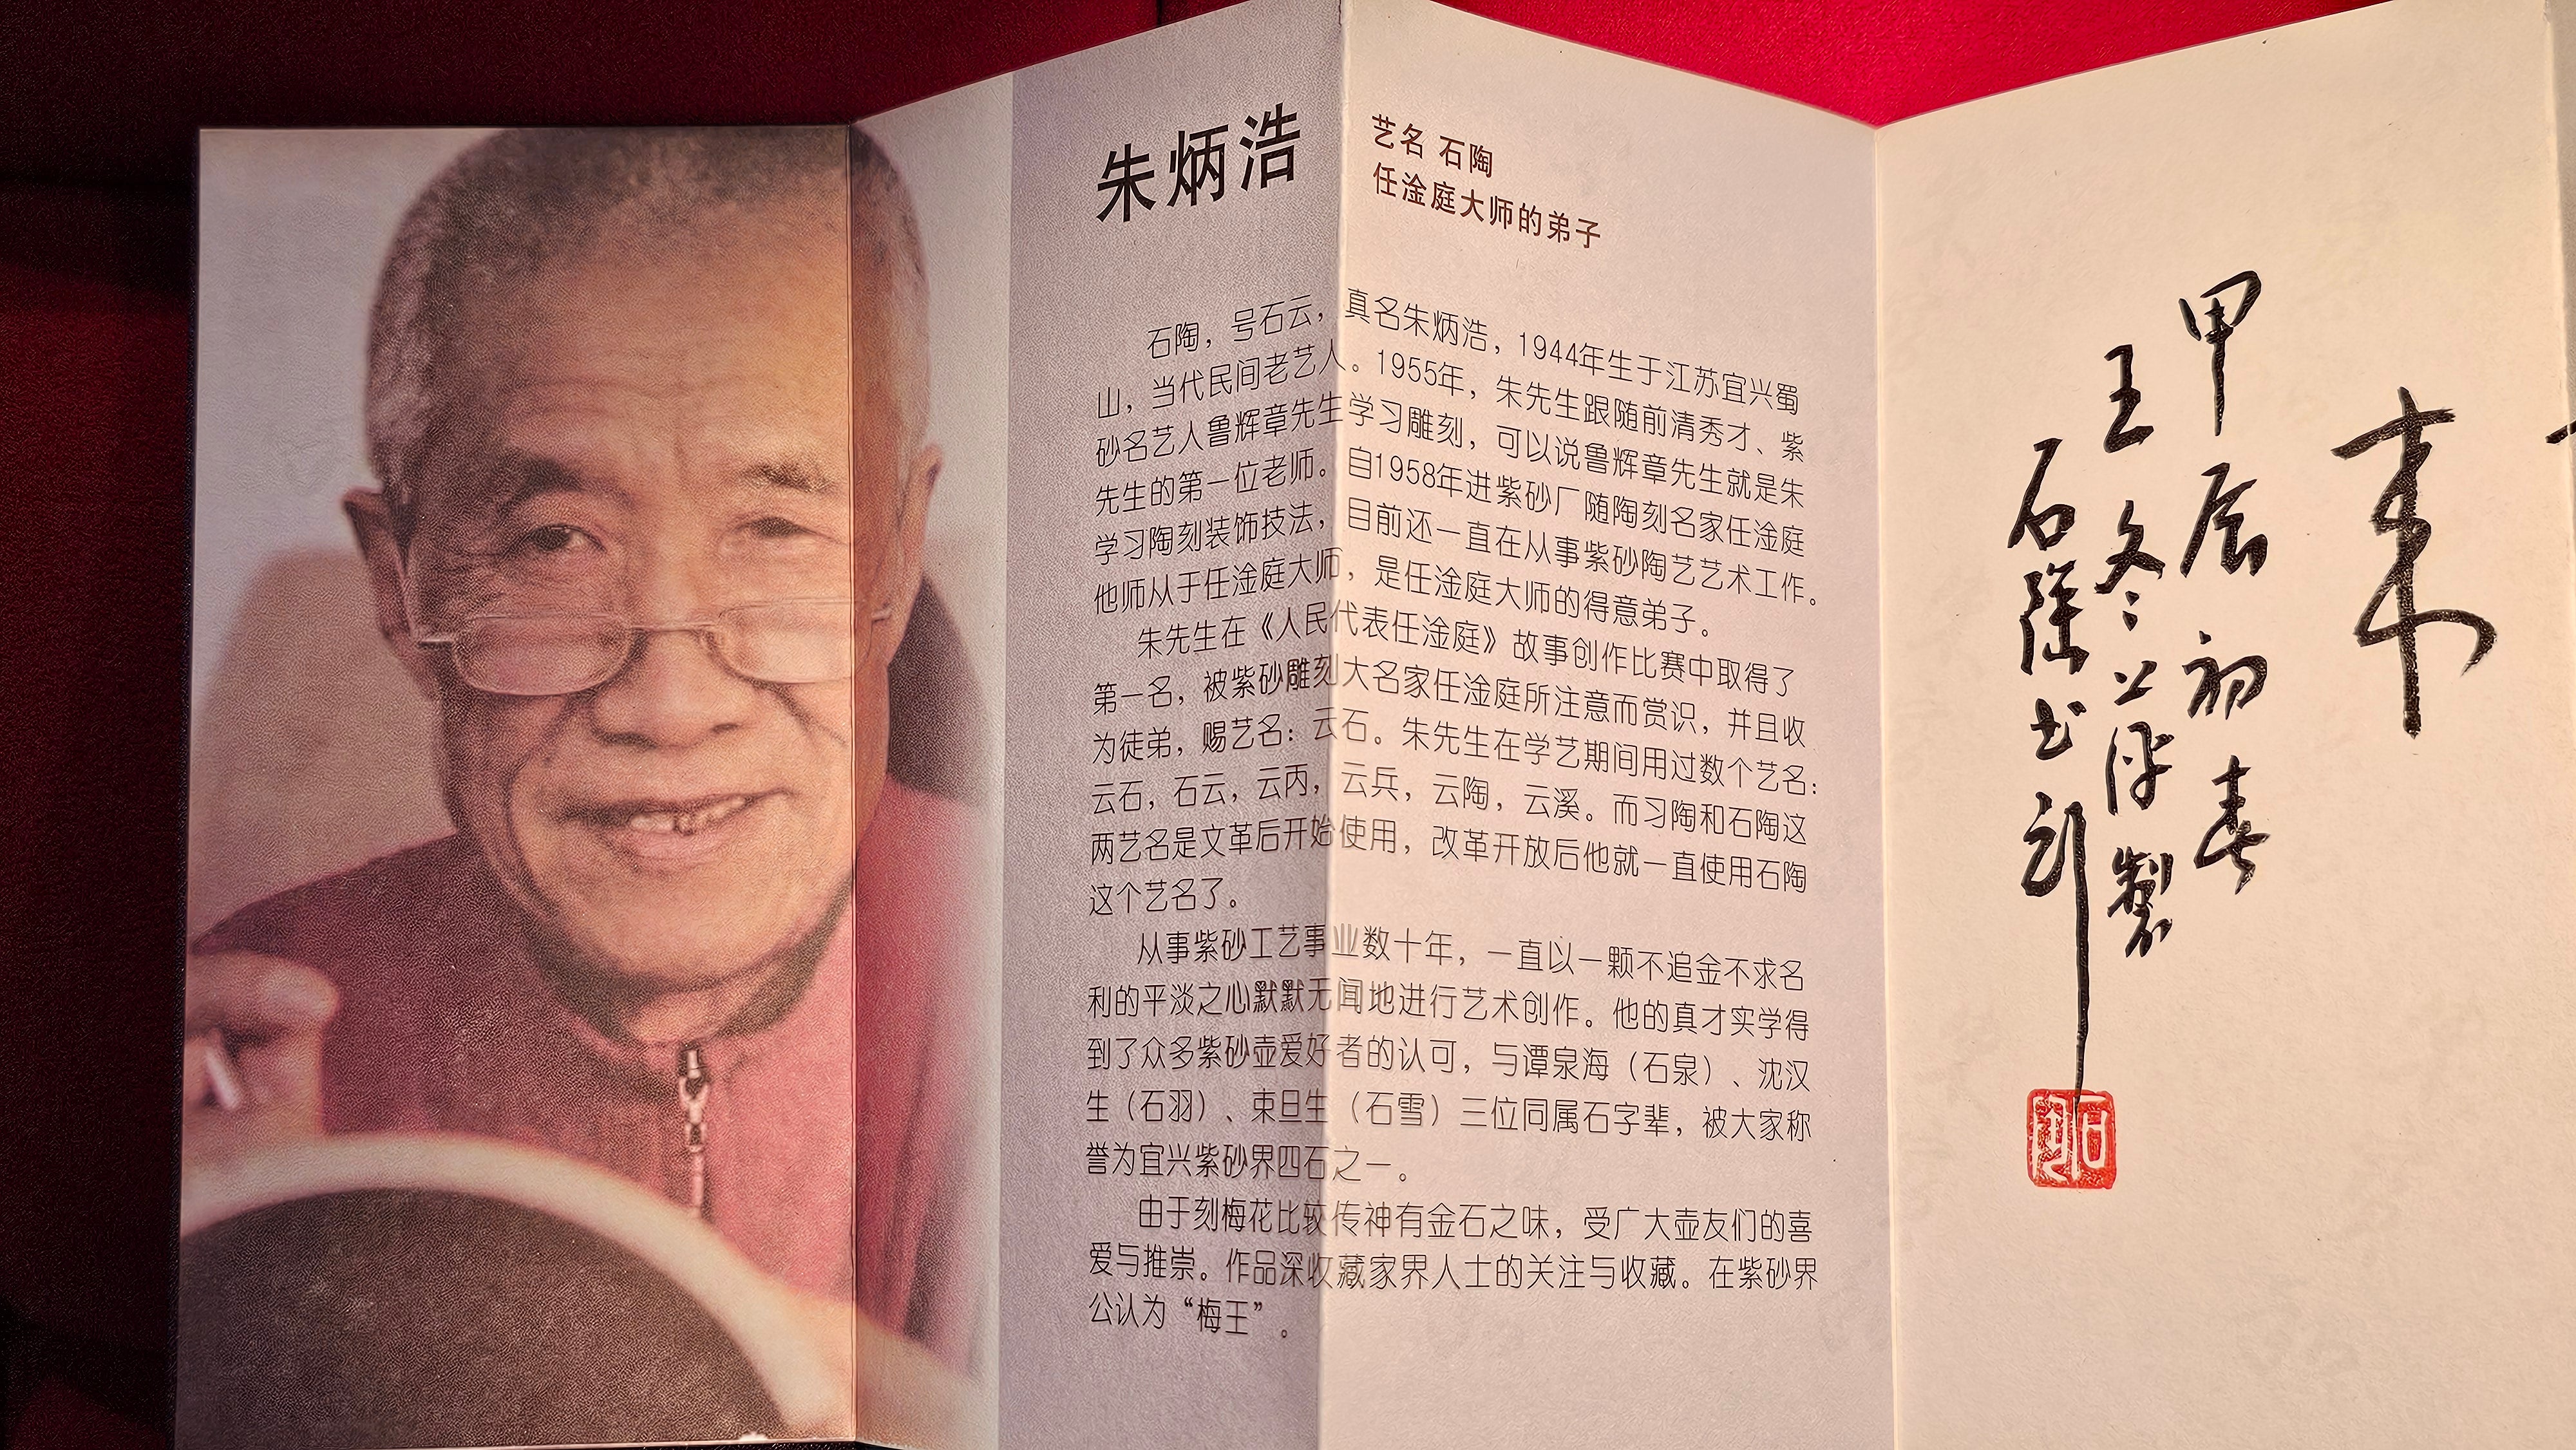 朱炳浩
艺名 石陶
任淦庭大师的弟子
石陶，号石云，真名朱炳浩，1944年生于江苏宜兴蜀
山，当代民间老艺人。1955年，朱先生跟随前清秀才、紫
砂名艺人鲁辉章先生学习雕刻，可以说鲁辉章先生就是朱
先生的第一位老师。自1958年进紫砂厂随陶刻名家任淦庭
学习陶刻装饰技法，目前还一直在从事紫砂陶艺艺术工作。
他师从于任淦庭大师，是任淦庭大师的得意弟子。
朱先生在《人民代表任淦庭》故事创作比赛中取得了
第一名，被紫砂雕刻大名家任淦庭所注意而赏识，并且收
为徒弟，赐艺名：云石。朱先生在学艺期间用过数个艺名：
云石，石云，云丙，云兵，云陶，云溪。而习陶和石陶这
两艺名是文革后开始使用，改革开放后他就一直使用石陶
这个艺名了。
从事紫砂工艺事业数十年，一直以一颗不追金不求名
利的平淡之心默默无闻地进行艺术创作。他的真才实学得
到了众多紫砂壶爱好者的认可，与谭泉海（石泉）、沈汉
生（石羽）、束旦生（石雪）三位同属石字辈，被大家称
誉为宜兴紫砂界四石之一。
由于刻梅花比较传神有金石之味，受广大壶友们的喜
爱与推崇。作品深收藏家界人士的关注与收藏。在紫砂界
公认为“梅王”。
甲辰初春
石陶